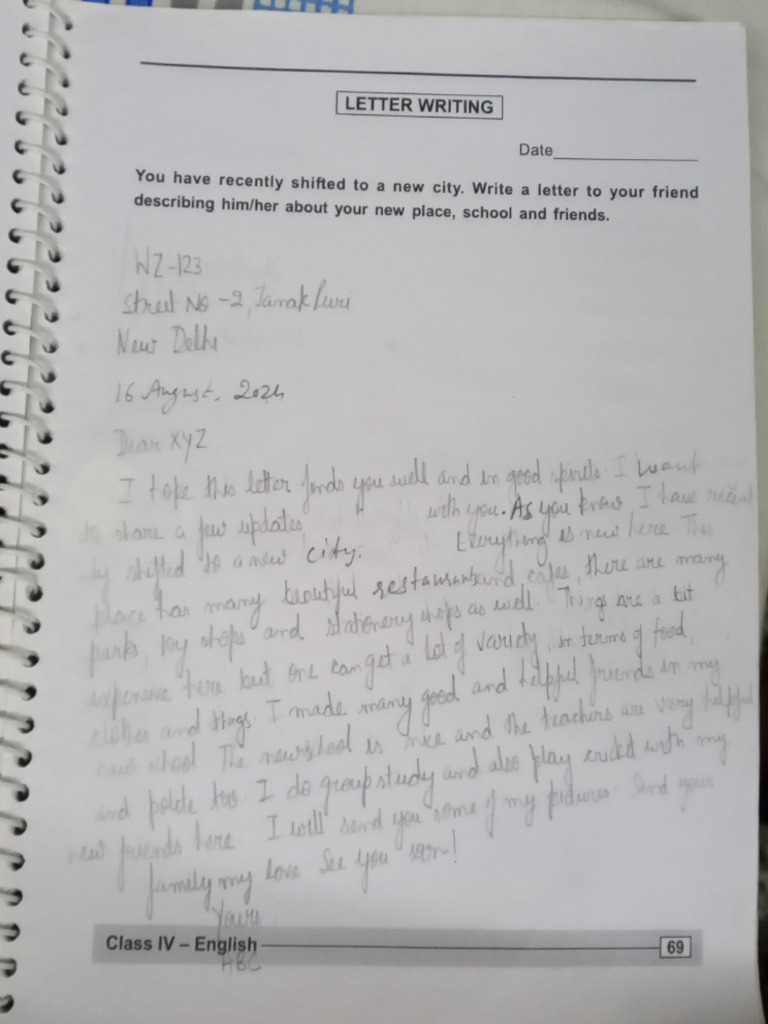 LETTER WRITING
Date
You have recently shifted to a new city. Write a letter to your friend
describing him/her about your new place, school and friends.
WZ-123
Street No -2, Janakpuri
New Delhi
16 August, 2024
Dear XYZ
I hope this letter finds you well and in good spirits. I want
to share a few updates with you. As you know, I have recent
ly shifted to a new city. Everything is new here. This
place has many beautiful restaurants and cafes, there are many
parks, toy shops and stationery shops as well. Things are a bit
expensive here but one can get a lot of variety, in terms of food,
clothes and things. I made many good and helpful friends in my
new school. The new school is nice and the teachers are very helpful
and polite too. I do group study and also play cricket with my
new friends here. I will send you some of my pictures. Send your
family my love. See you soon!
Yours
ABC
Class IV – English
69